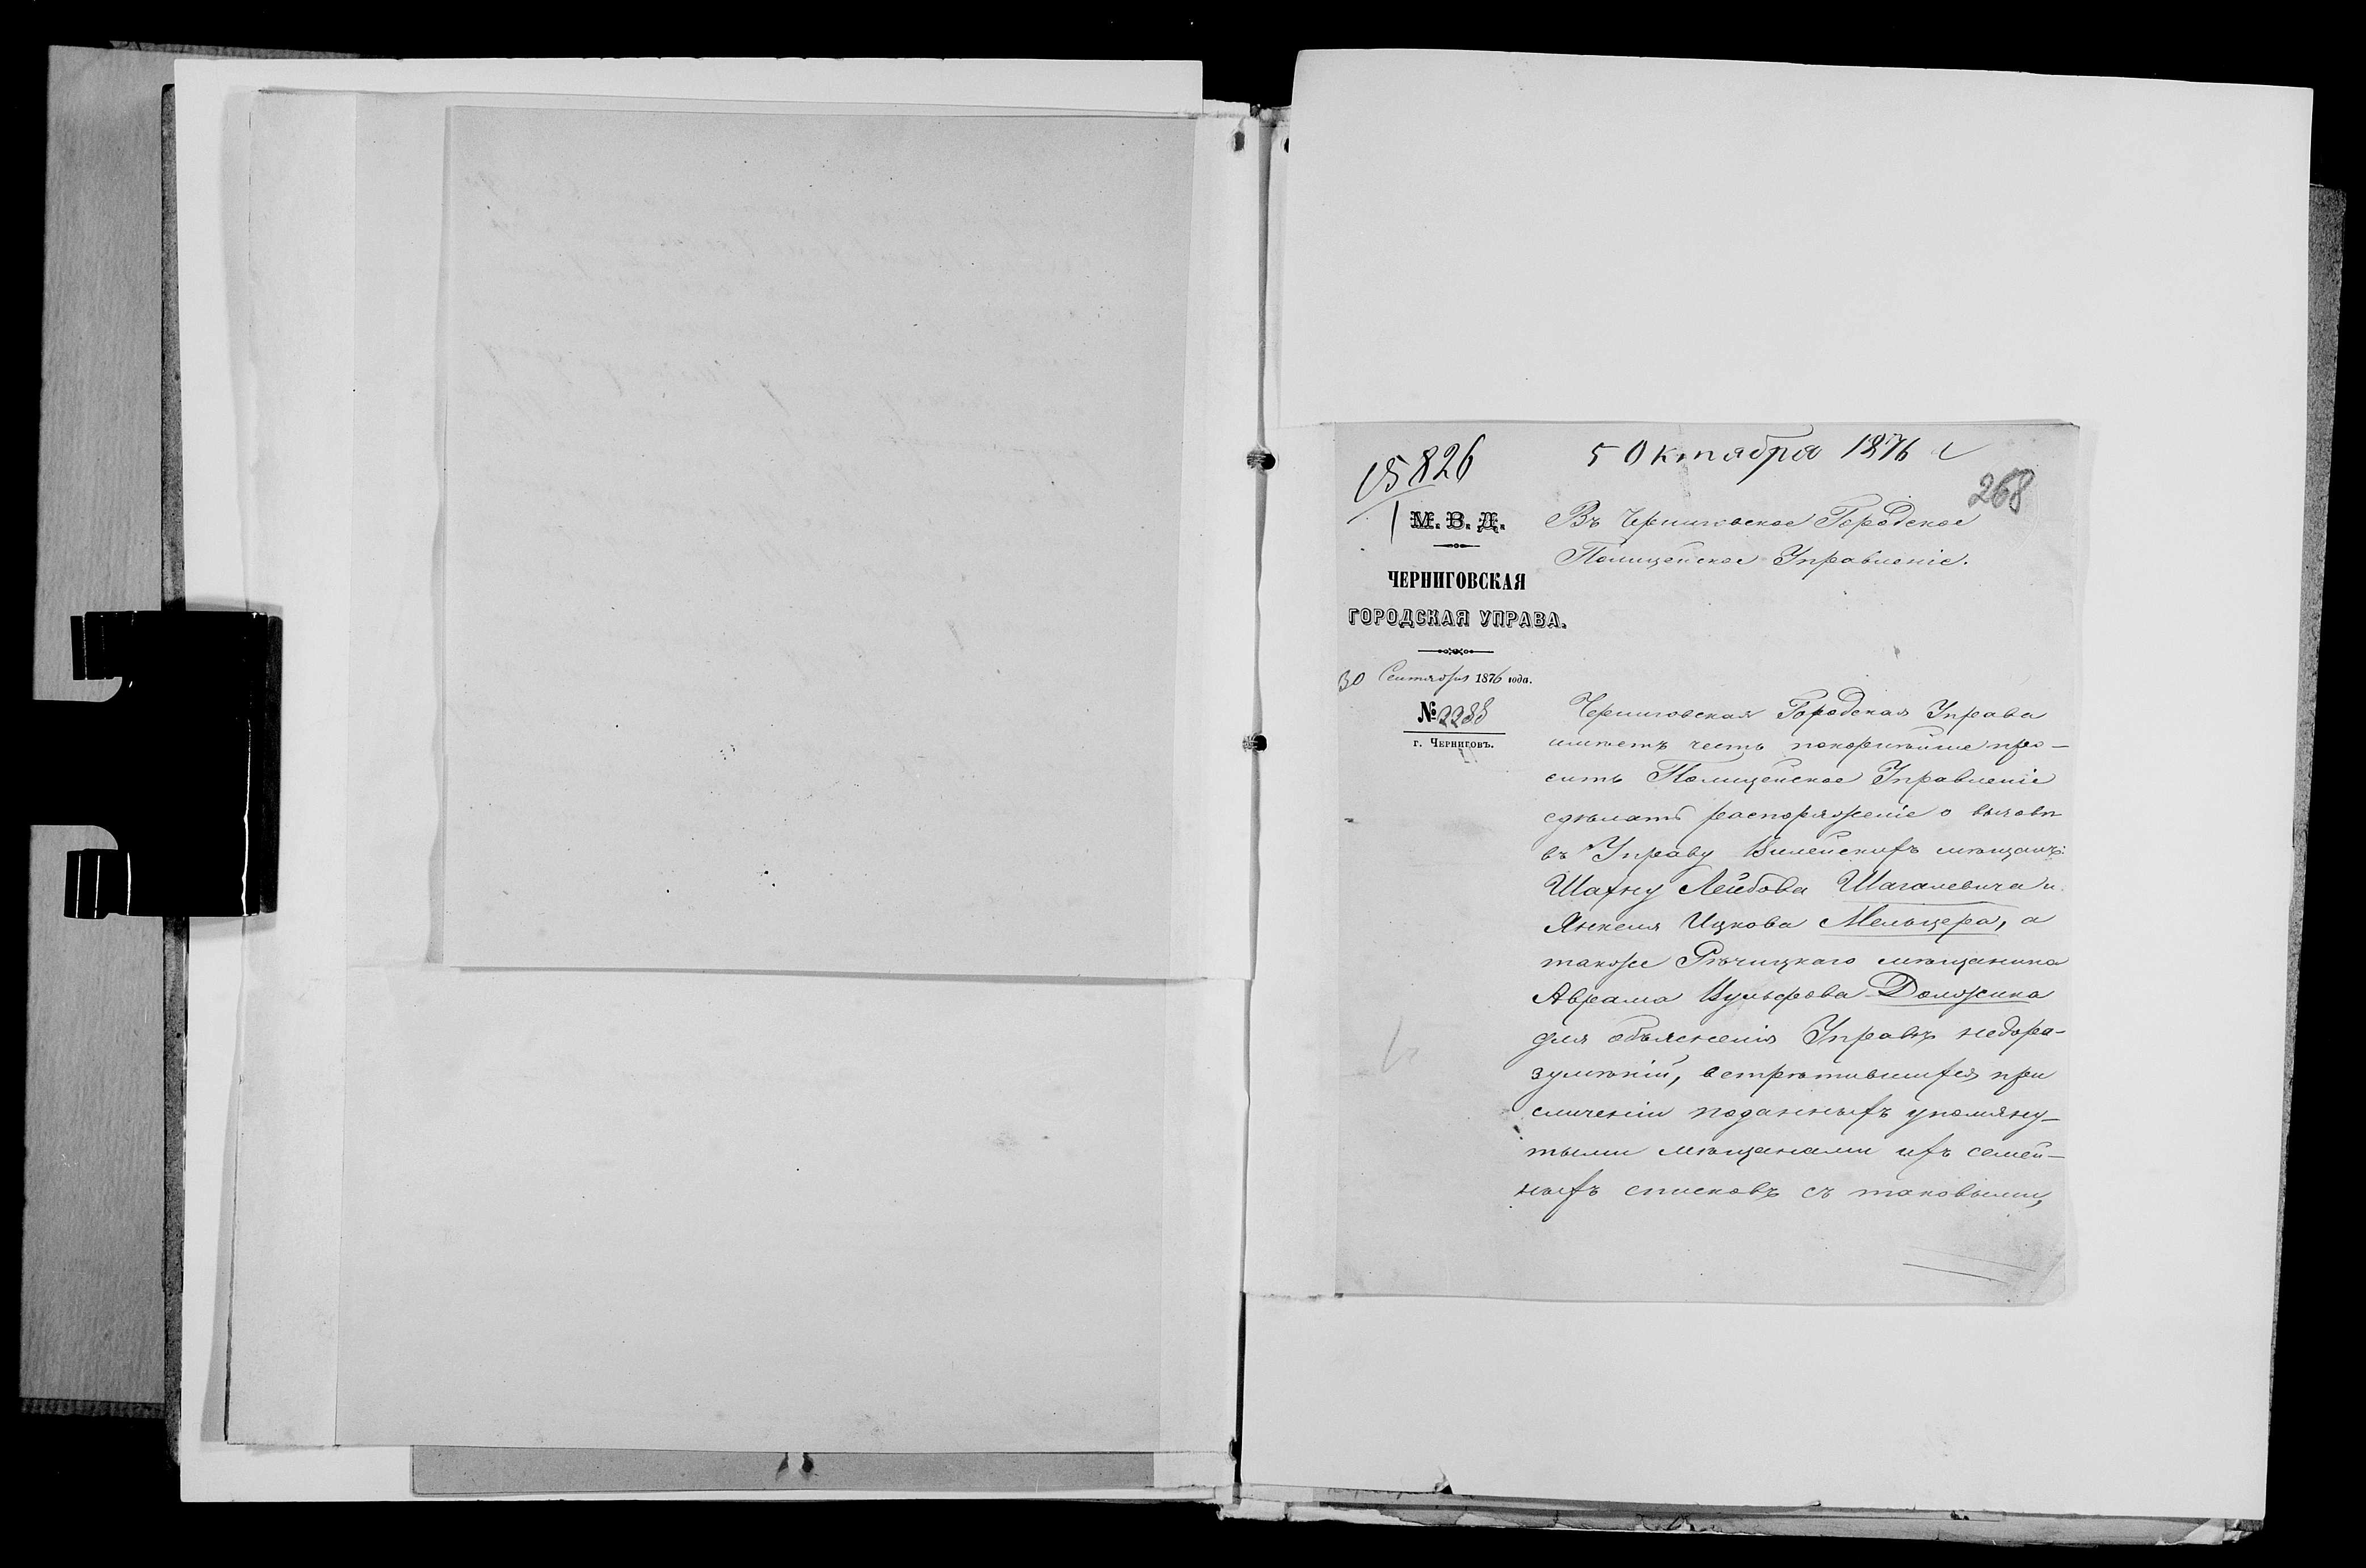 5 Октября 1876
15826
268
М. В. Д.
ЧЕРНИГОВСКАЯ
ГОРОДСКАЯ УПРАВА.
30 Сентября 1876 года.
№ 2288
г. Черниговъ.
Въ Черниговское Городское
Полицейское Управленіе.
Черниговская Городская Управа
имѣетъ честь покорнѣйше про-
сить Полицейское Управленіе
сдѣлать распоряженіе о вызовѣ
въ Управу Вилейскихъ мѣщанъ:
Шахну Лейбова Шагалевича и
Янкеля Ицкова Мельцера, а
также Рѣчицкаго мѣщанина
Аврама Вульфова Должина
для объясненія Управѣ недора-
зумѣній, встрѣтившихся при
сличеніи поданныхъ упомяну-
тыми мѣщанами ихъ семей-
ныхъ списковъ съ таковыми,